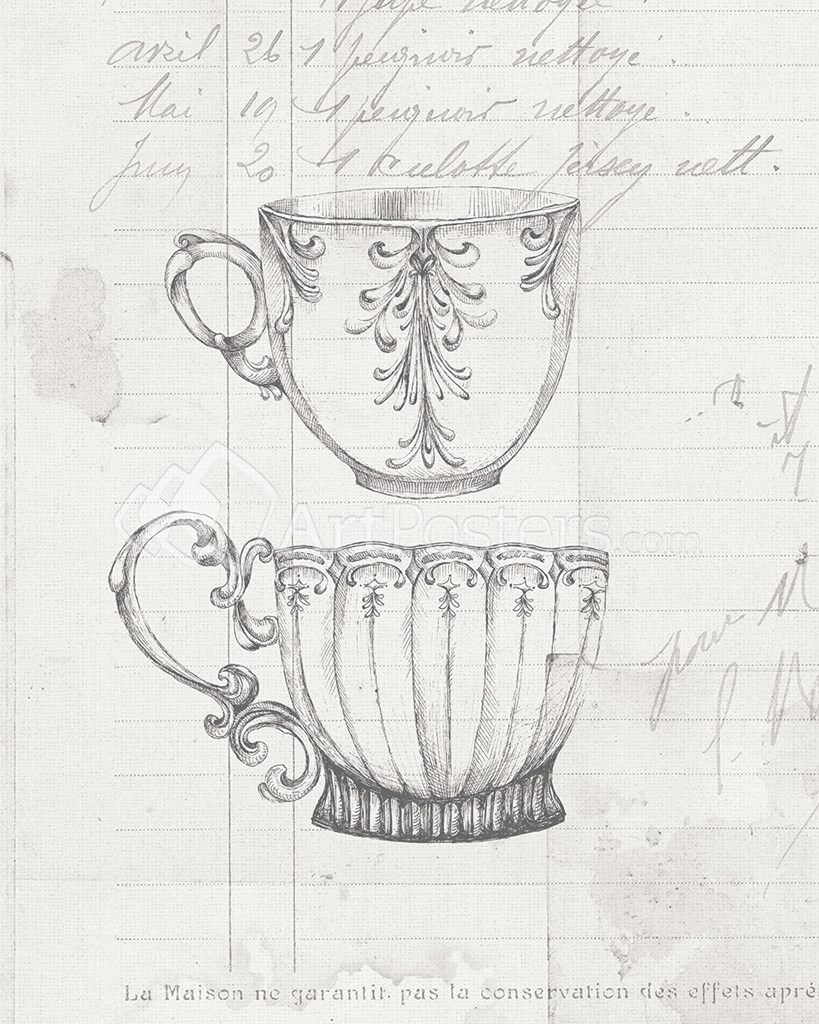 1 nettoyé
avril 26 1 peignoir nettoyé.
Mai 19 1 peignoir nettoyé.
Juin 20 1 culotte jersey nett.
ArtPosters.com
pour
La Maison ne garantit pas la conservation des effets aprè